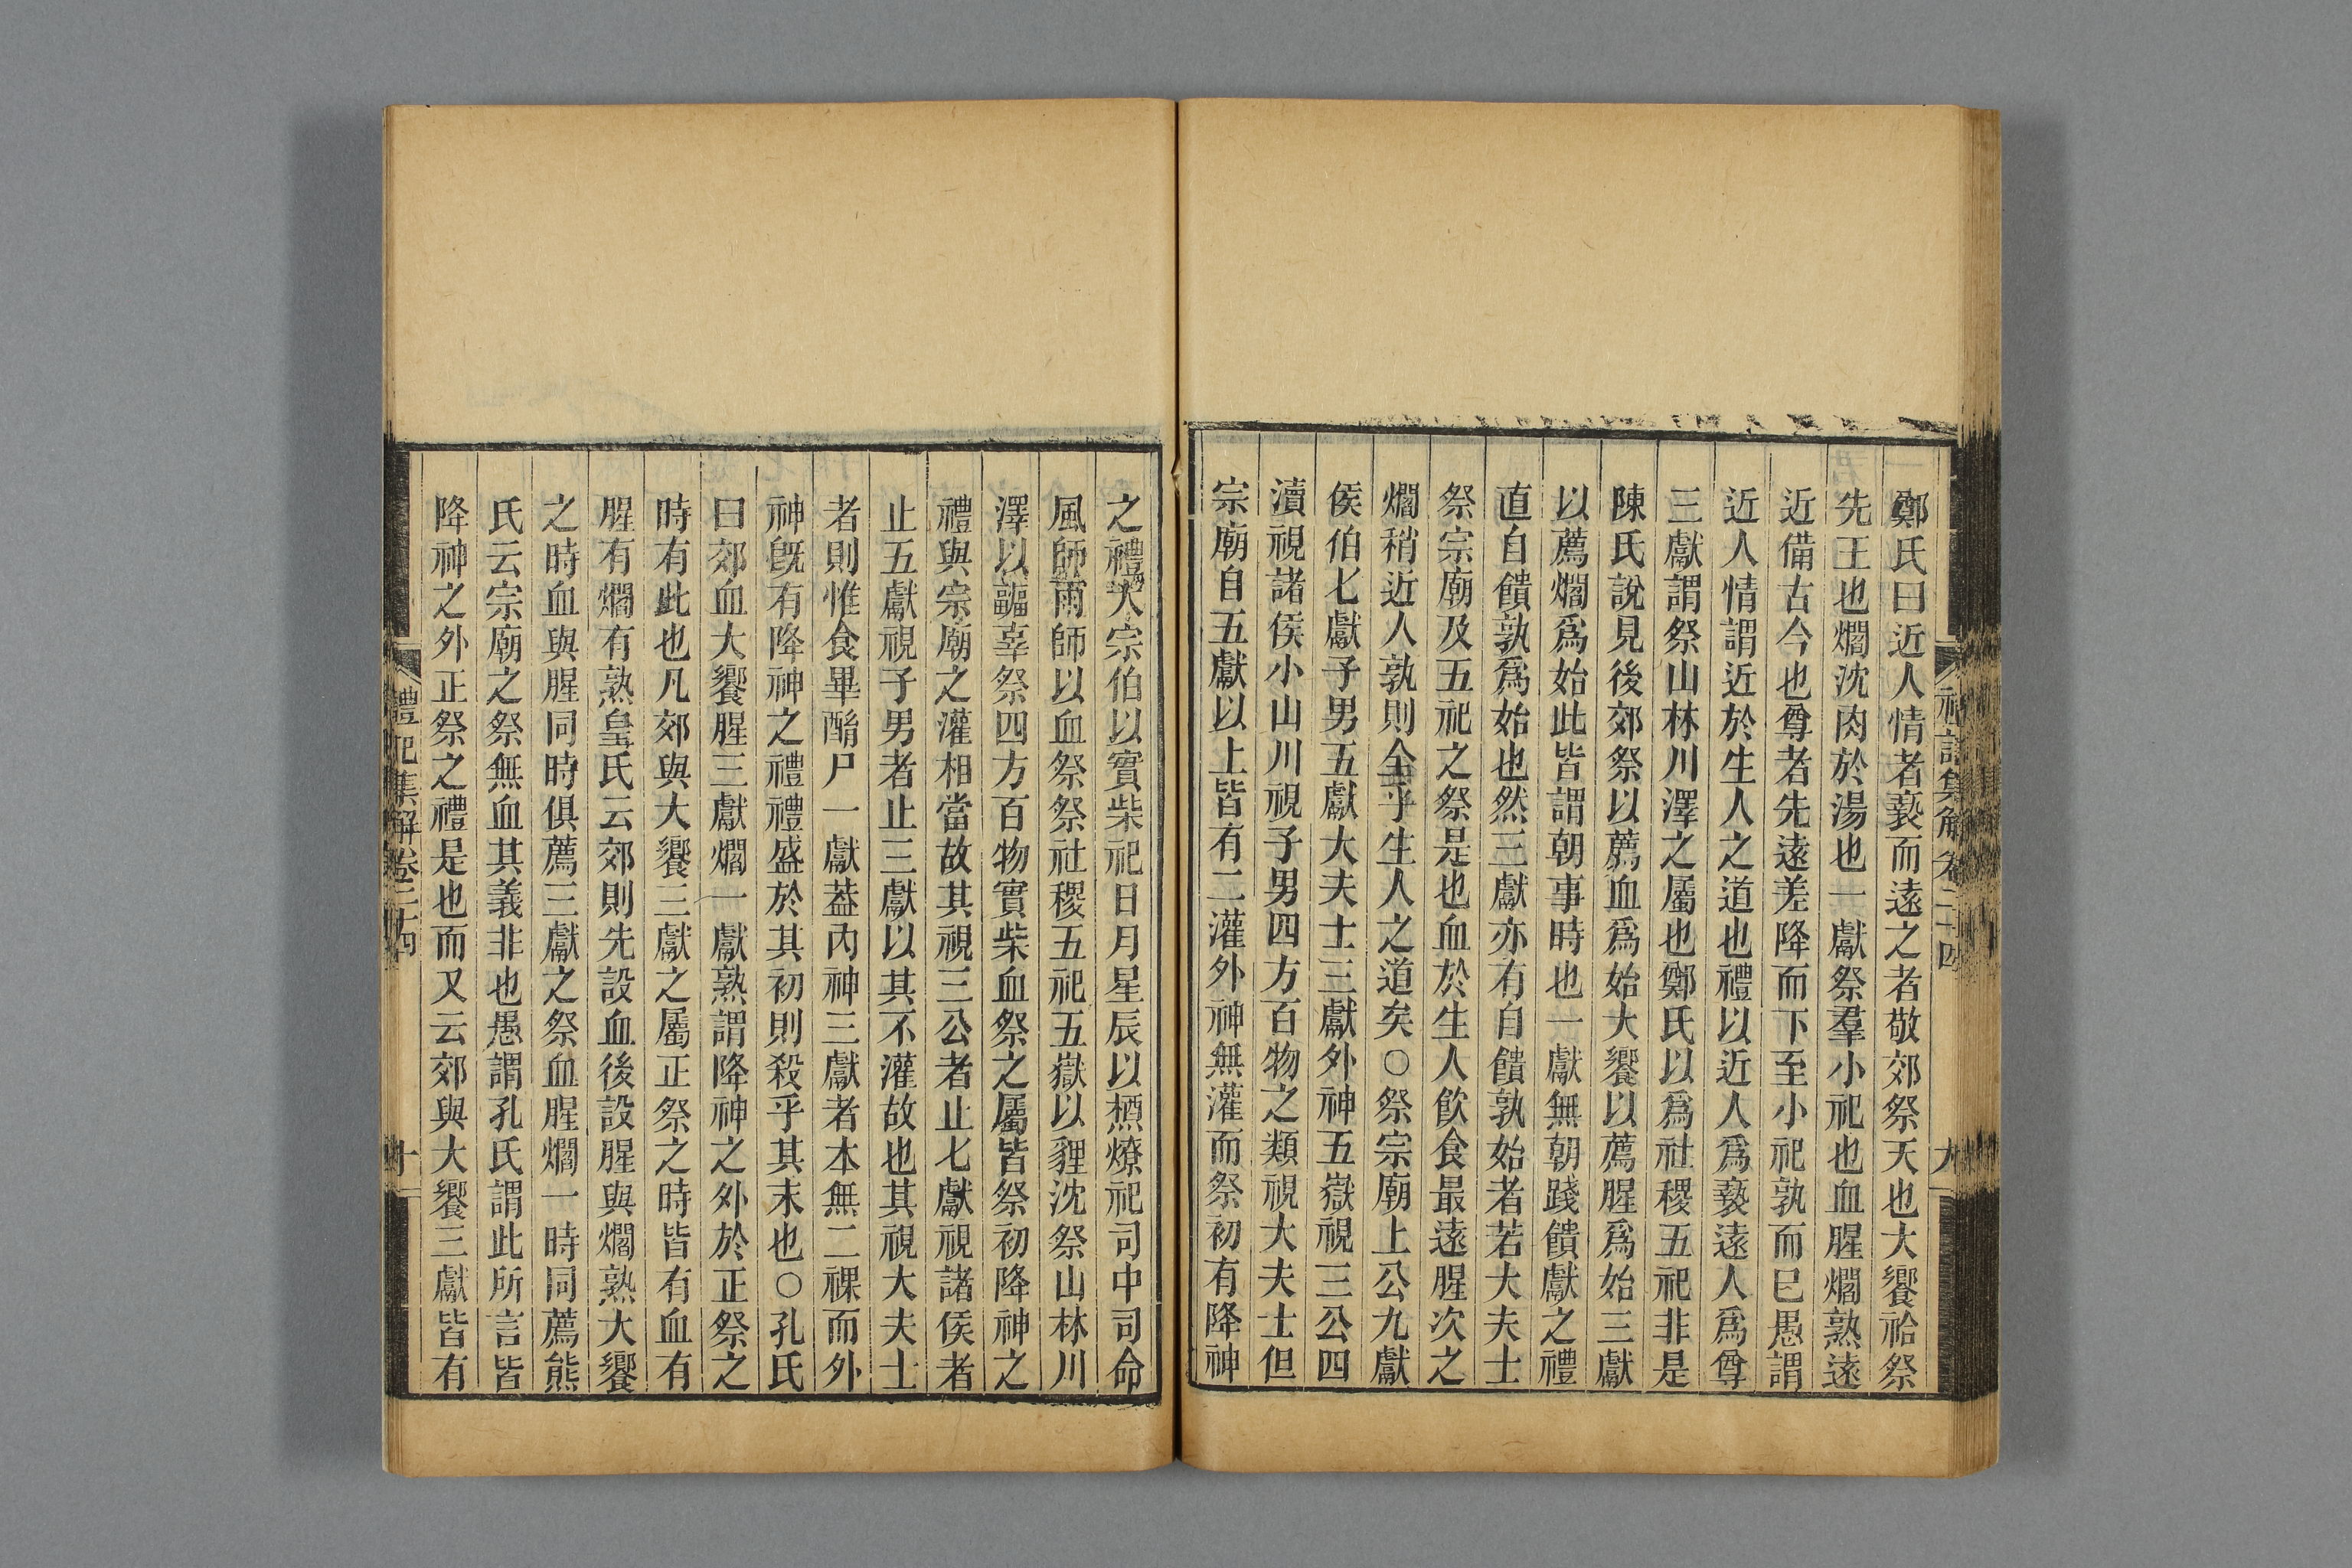 鄭氏曰近人情者褻而遠之者敬郊祭天也大饗祫祭
先王也爓沈肉於湯也一獻祭羣小祀也血腥爓熟遠
近備古今也尊者先遠差降而下至小祀孰而已愚謂
近人情謂近於生人之道也禮以近人爲褻遠人爲尊
三獻謂祭山林川澤之屬也鄭氏以爲社稷五祀非是
陳氏說見後郊祭以薦血爲始大饗以薦腥爲始三獻
以薦爓爲始此皆謂朝事時也一獻無朝踐饋獻之禮
直自饋孰爲始也然三獻亦有自饋孰始者若大夫士
祭宗廟及五祀之祭是也血於生人飮食最遠腥次之
爓稍近人孰則全乎生人之道矣○祭宗廟上公九獻
侯伯七獻子男五獻大夫士三獻外神五嶽視三公四
瀆視諸侯小山川視子男四方百物之類視大夫士但
宗廟自五獻以上皆有二灌外神無灌而祭初有降神
禮記集解卷二十四
九
之禮大宗伯以實柴祀日月星辰以槱燎祀司中司命
風師雨師以血祭祭社稷五祀五嶽以貍沈祭山林川
澤以疈辜祭四方百物實柴血祭之屬皆祭初降神之
禮與宗廟之灌相當故其視三公者止七獻視諸侯者
止五獻視子男者止三獻以其不灌故也其視大夫士
者則惟食畢酳尸一獻葢內神三獻者本無二祼而外
神旣有降神之禮禮盛於其初則殺乎其末也○孔氏
曰郊血大饗腥三獻爓一獻熟謂降神之外於正祭之
時有此也凡郊與大饗三獻之屬正祭之時皆有血有
腥有爓有熟皇氏云郊則先設血後設腥與爓熟大饗
之時血與腥同時俱薦三獻之祭血腥爓一時同薦熊
氏云宗廟之祭無血其義非也愚謂孔氏謂此所言皆
降神之外正祭之禮是也而又云郊與大饗三獻皆有
禮記集解卷二十四
十